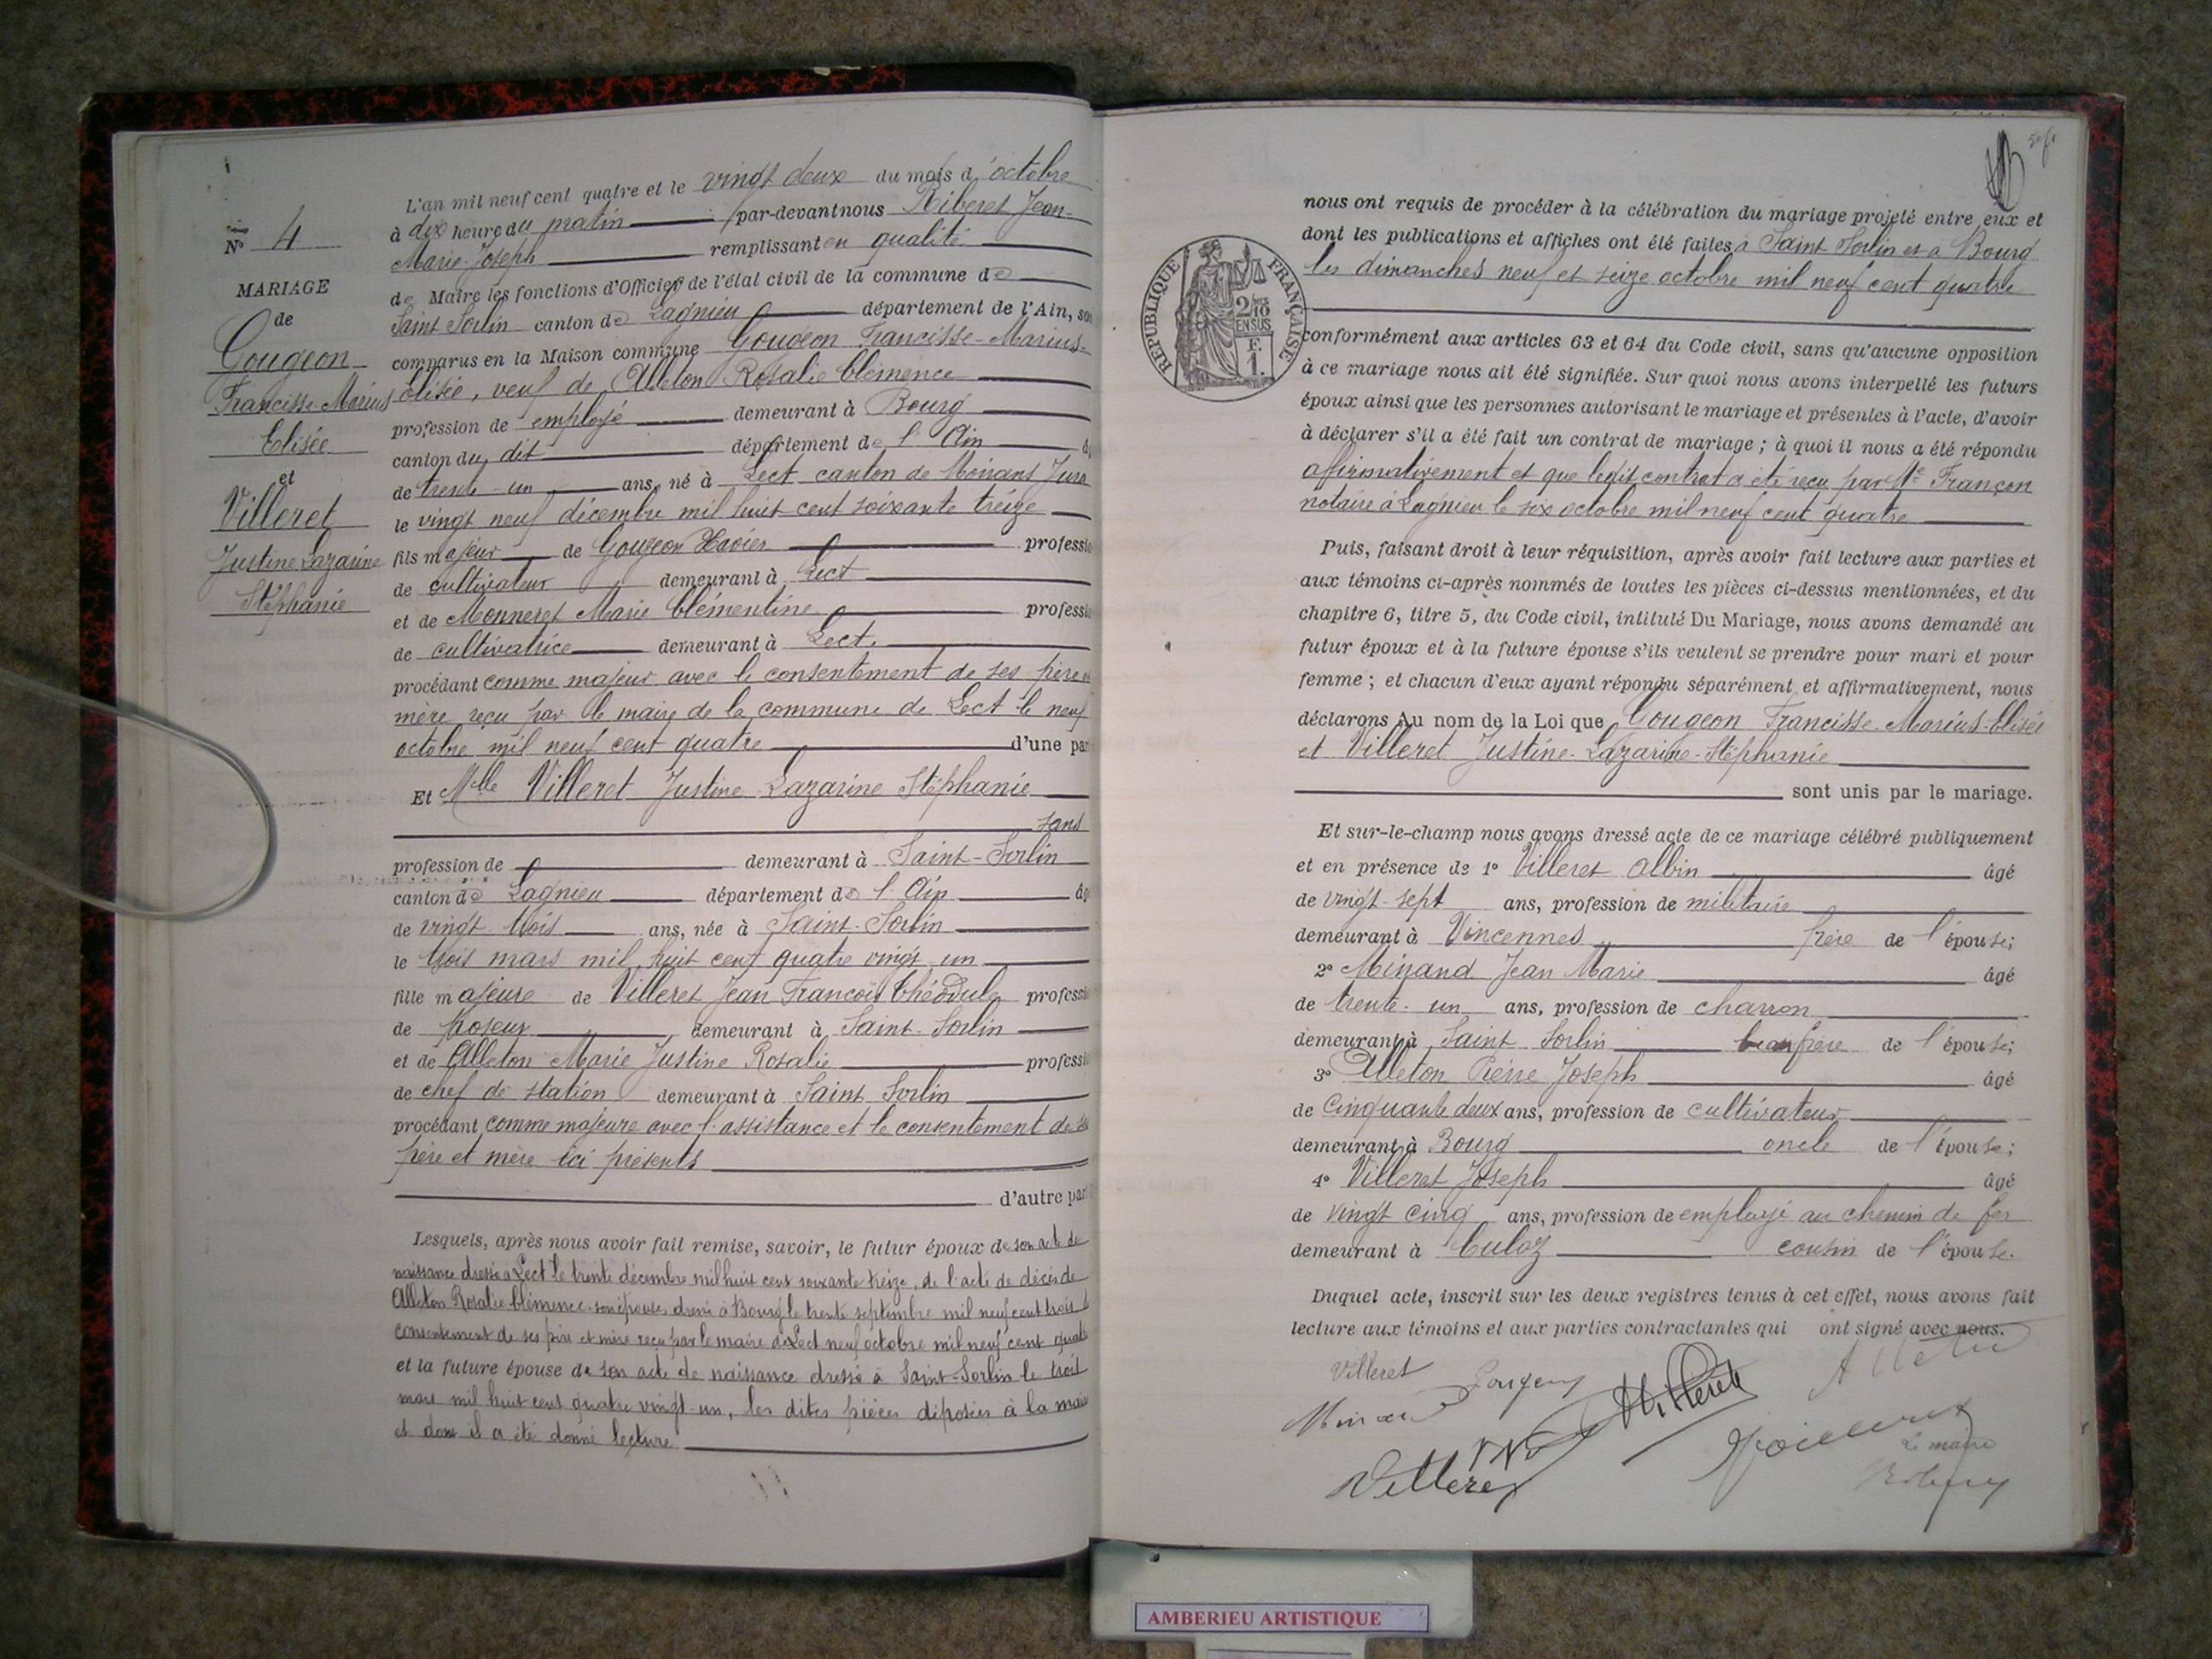 N° 4
MARIAGE
de
Gougeon
Francisse-Marius
Elisée
et
Villeret
Justine Lazarine
Stéphanie
L'an mil neuf cent quatre et le vingt deux du mois d'octobre
à dix heure du matin par-devant nous Riberet Jean-
Marie-Joseph remplissant en qualité
de Maire les fonctions d'Officier de l'état civil de la commune de
Saint Sorlin canton de Lagnieu département de l'Ain, so
comparus en la Maison commune Gougeon Francisse-Marius-
Elisée, veuf de Alleton Rosalie Clémence
profession de employé demeurant à Bourg
canton du dit département de l'Ain
de trente-un ans, né à Lect canton de Moirans Jura
le vingt neuf décembre mil huit cent soixante treize
fils majeur de Gougeon Xavier professi
de cultivateur demeurant à Lect
et de Monneret Marie Clémentine professi
de cultivatrice demeurant à Lect.
procédant comme majeur avec le consentement de ses père et
mère reçu par le maire de la commune de Lect le neuf
octobre mil neuf cent quatre d'une par
Et Melle Villeret Justine Lazarine Stéphanie
sans
profession de demeurant à Saint-Sorlin
canton de Lagnieu département de l'Ain âg
de vingt trois ans, née à Saint-Sorlin
le trois mars mil huit cent quatre vingt un
fille majeure de Villeret Jean François Théodule professi
de poseur demeurant à Saint-Sorlin
et de Alleton Marie Justine Rosalie professi
de chef de station demeurant à Saint Sorlin
procédant comme majeure avec l'assistance et le consentement de ses
père et mère ici présents
d'autre par
Lesquels, après nous avoir fait remise, savoir, le futur époux de son acte de
naissance dressé à Lect le trente décembre mil huit cent soixante treize, de l'acte de décès de
Alleton Rosalie Clémence son épouse dressé à Bourg le trente septembre mil neuf cent trois
consentement de ses père et mère reçu par le maire à Lect neuf octobre mil neuf cent quatre
et la future épouse de son acte de naissance dressé à Saint-Sorlin le trois
mars mil huit cent quatre vingt-un, les dites pièces déposées à la mairie
et dont il a été donné lecture
nous ont requis de procéder à la célébration du mariage projeté entre eux et
dont les publications et affiches ont été faites à Saint Sorlin et à Bourg
les dimanches neuf et seize octobre mil neuf cent quatre
RÉPUBLIQUE FRANÇAISE
2/10
EN SUS
F.
1.
conformément aux articles 63 et 64 du Code civil, sans qu'aucune opposition
à ce mariage nous ait été signifiée. Sur quoi nous avons interpellé les futurs
époux ainsi que les personnes autorisant le mariage et présentes à l'acte, d'avoir
à déclarer s'il a été fait un contrat de mariage ; à quoi il nous a été répondu
affirmativement et que ledit contrat a été reçu par Me Françon
notaire à Lagnieu le six octobre mil neuf cent quatre
Puis, faisant droit à leur réquisition, après avoir fait lecture aux parties et
aux témoins ci-après nommés de toutes les pièces ci-dessus mentionnées, et du
chapitre 6, titre 5, du Code civil, intitulé Du Mariage, nous avons demandé au
futur époux et à la future épouse s'ils veulent se prendre pour mari et pour
femme ; et chacun d'eux ayant répondu séparément et affirmativement, nous
déclarons Au nom de la Loi que Gougeon Francisse-Marius-Elisée
et Villeret Justine-Lazarine-Stéphanie
sont unis par le mariage.
Et sur-le-champ nous avons dressé acte de ce mariage célébré publiquement
et en présence de 1° Villeret Albin âgé
de vingt-sept ans, profession de militaire
demeurant à Vincennes frère de l'épouse;
2° Minand Jean Marie âgé
de trente-un ans, profession de charron
demeurant à Saint Sorlin beau frère de l'épouse;
3° Alleton Pierre Joseph âgé
de Cinquante deux ans, profession de cultivateur
demeurant à Bourg oncle de l'épouse;
4° Villeret Joseph âgé
de vingt cinq ans, profession de employé au chemin de fer
demeurant à Culoz cousin de l'épouse.
Duquel acte, inscrit sur les deux registres tenus à cet effet, nous avons fait
lecture aux témoins et aux parties contractantes qui ont signé avec nous.
Villeret Gougeon Villeret Alleton
Minand
Villeret
Le maire